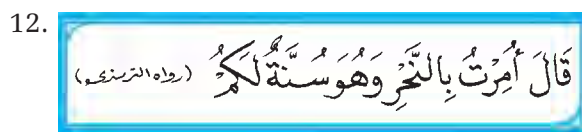 12.
قَالَ أُمِرْتُ بِالنَّحْرِ وَهُوَ سُنَّةٌ لَكُمْ (رواه الترمذي)